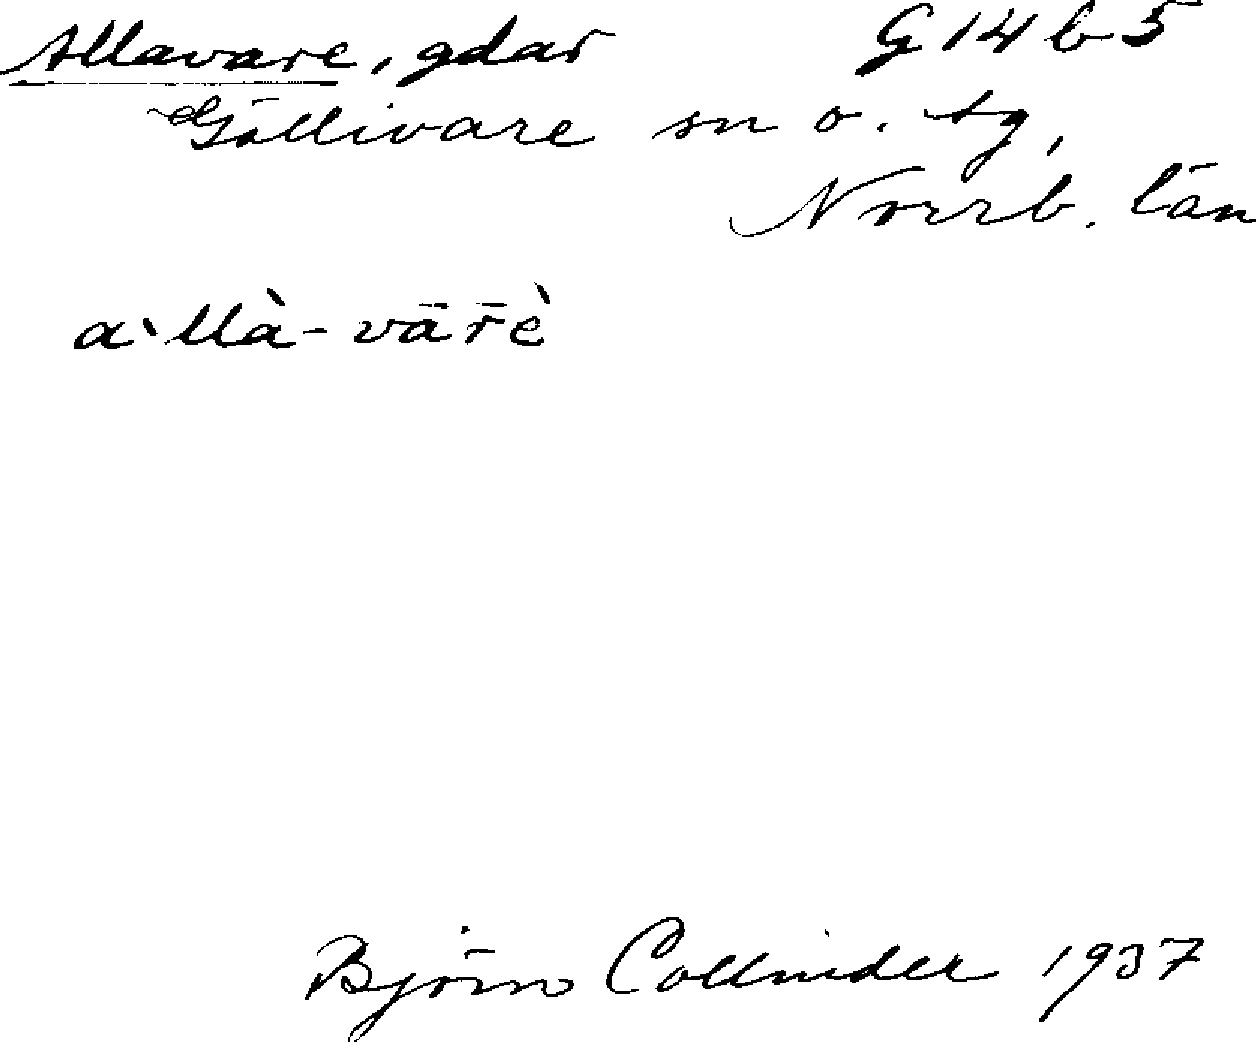 Allavare, gdar G 14 b 5
Gällivare sn o. tg,
Norrb. län
a`llà-vār̄è
Björn Collinder 1937